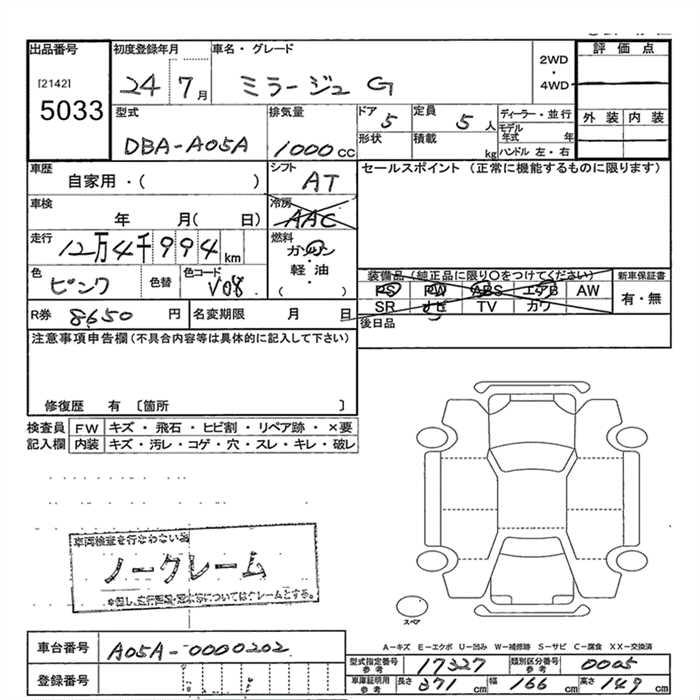 出品番号
[2142]
5033
初度登録年月
24 7月
車名・グレード
ミラージュ G
2WD
・
4WD
評価点
外装 内装
型式
DBA-A05A
排気量
1000 cc
ドア 5
形状
定員 5 人
積載 kg
ディーラー・並行
モデル年式 年
ハンドル 左・右
車歴
自家用・( )
シフト AT
セールスポイント (正常に機能するものに限ります)
車検
年 月( 日)
冷房 AAC
走行
12万4千994 km
燃料
ガソリン
軽・油
( )
色 ピンク
色替
色コード V08
装備品 (純正品に限り○をつけてください)
PS PW ABS エアB AW
SR ナビ TV カワ
新車保証書
有・無
R券 8650 円
名変期限 月 日
後日品
注意事項申告欄 (不具合内容等は具体的に記入して下さい)
修復歴 有 〔箇所 〕
検査員 FW キズ・飛石・ヒビ割・リペア跡・×要
記入欄 内装 キズ・汚レ・コゲ・穴・スレ・キレ・破レ
車両検査を行なわない為
ノークレーム
スペア
A-キズ E-エクボ U-凹み W-補修跡 S-サビ C-腐食 XX-交換済
車台番号 A05A-0000202
登録番号
型式指定番号参考 17327
類別区分番号参考 0005
車庫証明用参考 長さ 371 cm 幅 166 cm 高さ 149 cm